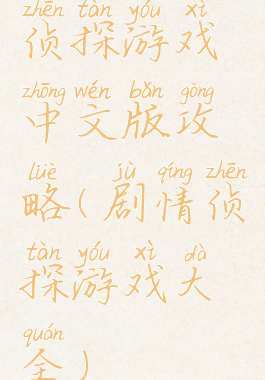 zhēn tàn yóu xì
侦探游戏
zhōng wén bǎn gōng
中文版攻
lüè jù qíng zhēn
略(剧情侦
tàn yóu xì dà
探游戏大
quán
全)